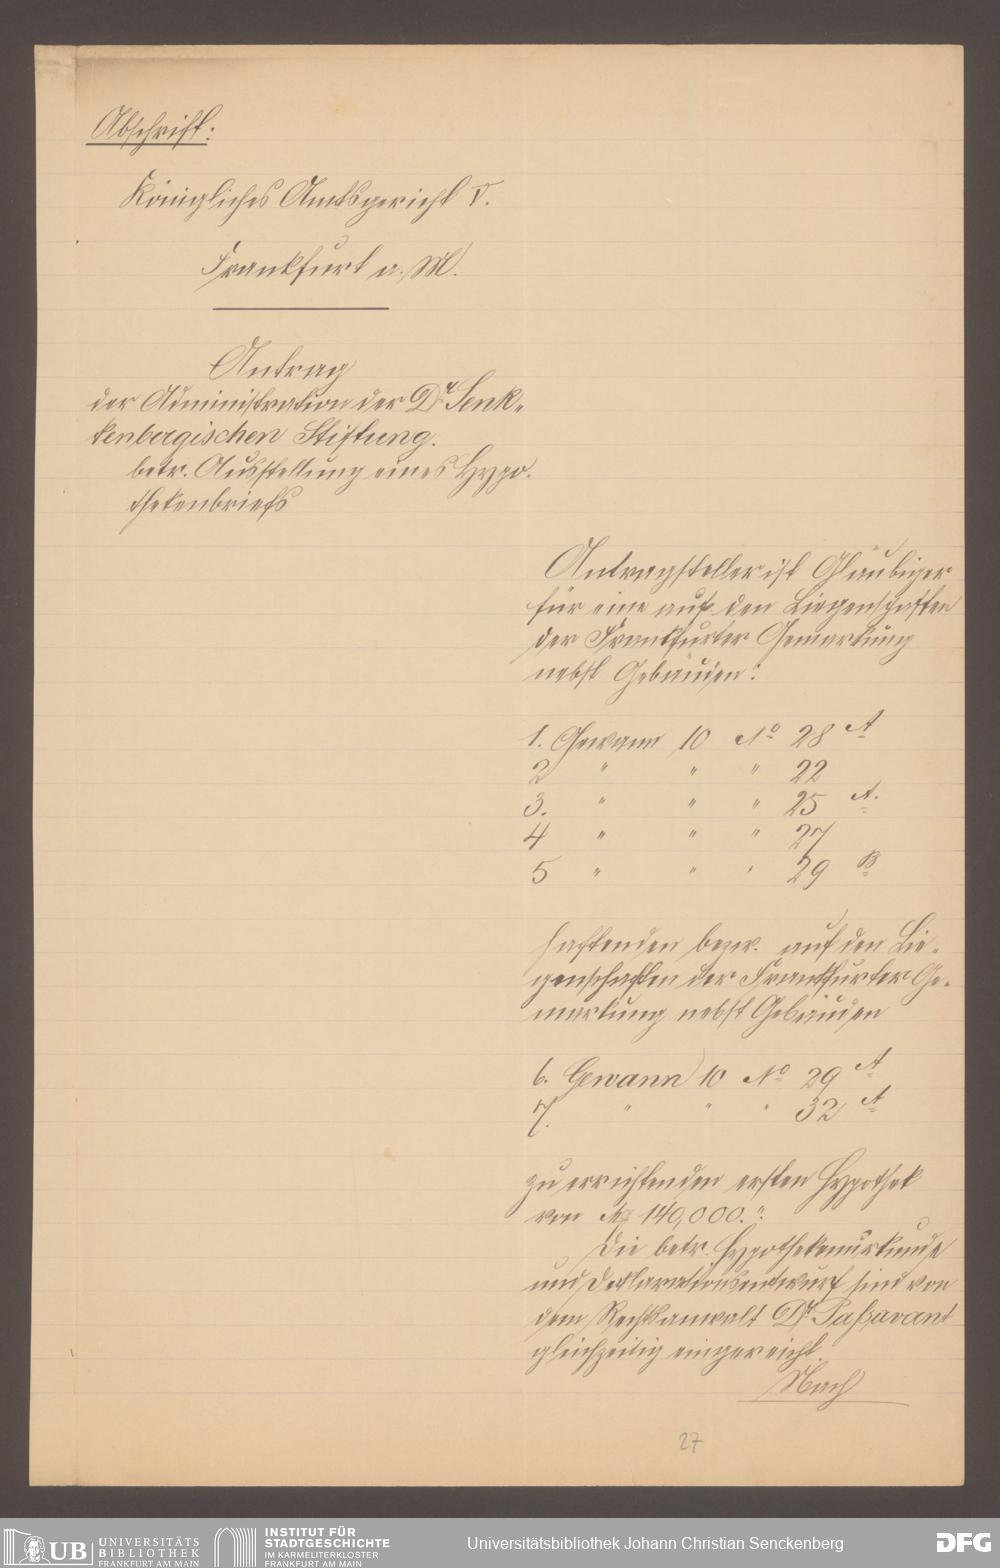 Abschrift:
Königliches Amtsgericht V.
Frankfurt a. M.
Antrag
der Administration der Dr. Senk-
kenbergischen Stiftung.
betr. Ausstellung eines Hypo-
thekenbriefs
Antragsteller ist Gläubiger
für eine auf den Liegenschaften
der Frankfurter Gemarkung
nebst Gebäuden:
1. Gewann 10 No 28 A
2 " " " 22
3. " " " 25 A.
4 " " " 27
5 " " " 29 B
haftenden bezw. auf den Lie-
genschaften der Frankfurter Ge-
markung nebst Gebäuden
6. Gewann 10 No 29 A
7. " " " 32 A
zu errichtenden ersten Hypothek
von M 140,000.".
Die betr. Hypothekenurkunde
und Deklarationsentwurf sind von
dem Rechtsanwalt Dr. Passavant
gleichzeitig eingereicht.
Nach
27
UB UNIVERSITÄTS BIBLIOTHEK FRANKFURT AM MAIN
INSTITUT FÜR STADTGESCHICHTE IM KARMELITERKLOSTER FRANKFURT AM MAIN
Universitätsbibliothek Johann Christian Senckenberg
DFG